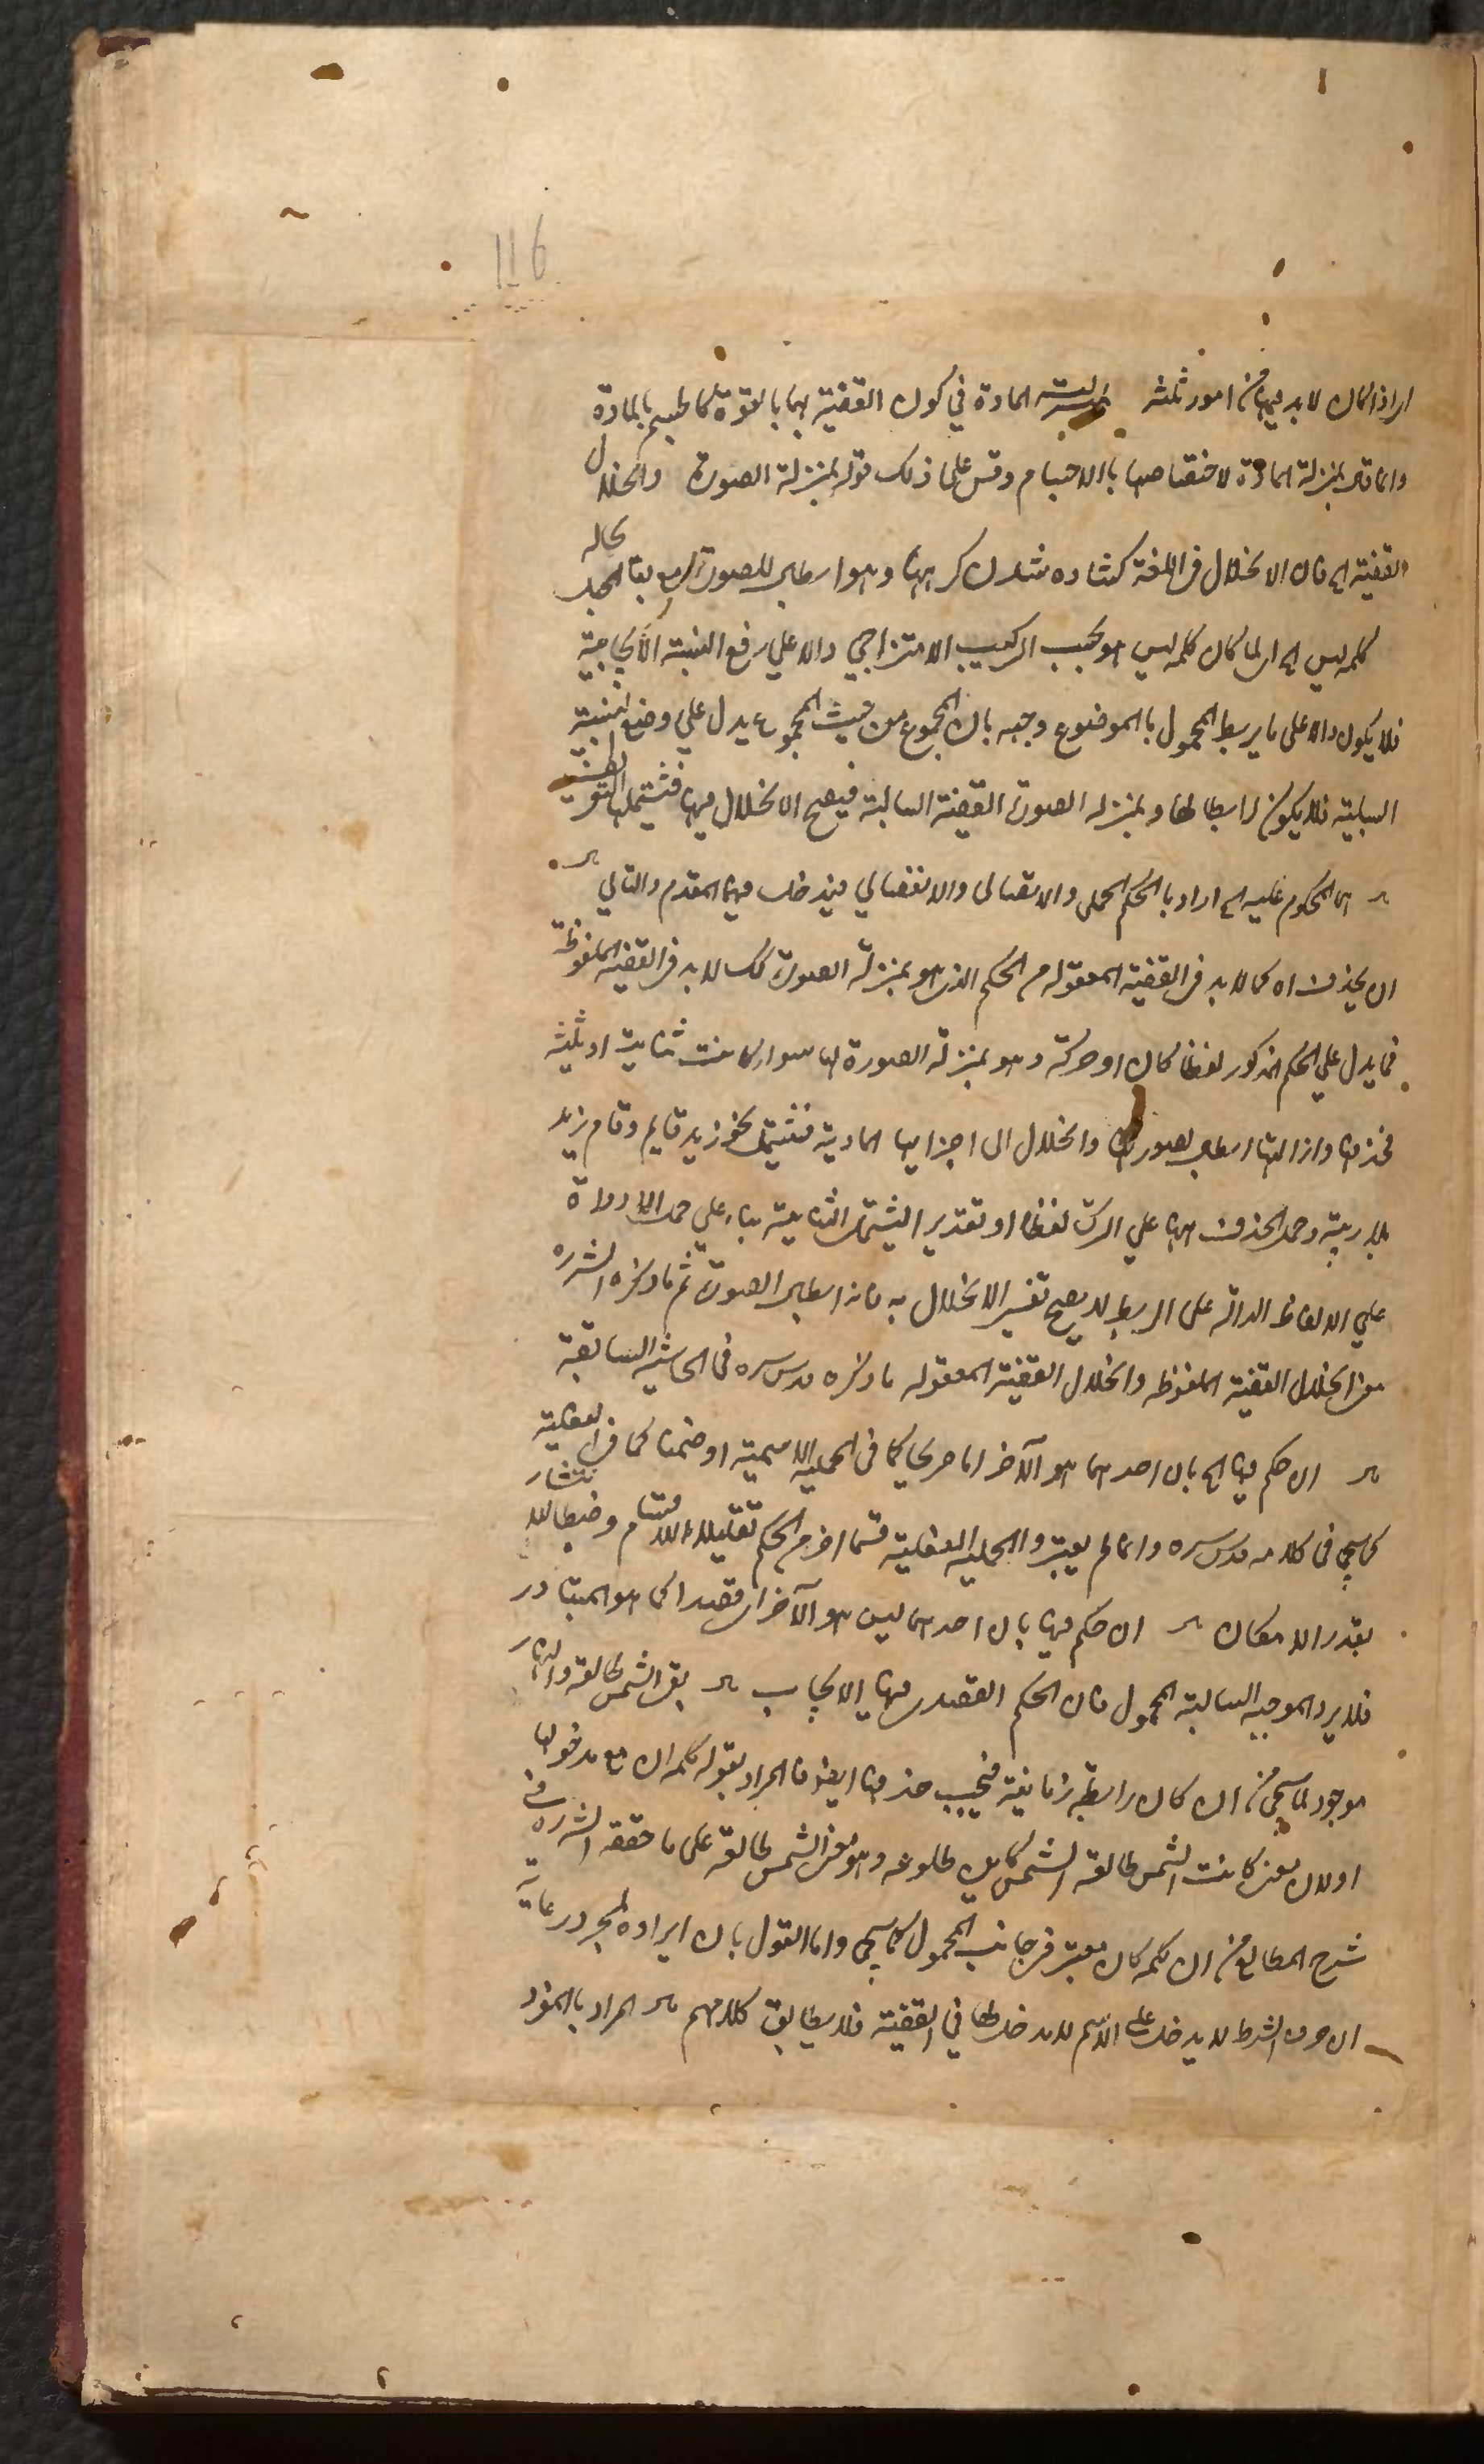 116
اى اذا كان لابد فيها من امور ثلثة المادة في كون القضية بهما بالقوة كما طبهم بالمادة
وانما قال بمنزلة المادة لاختصاصها بالاجسام وقس على ذلك قوله بمنزلة الصورة وانحلال
القضية اه فان الانحلال فى اللغة كشاده شدن كره وهو ابطال الصورة مع بقاء المحل بحاله
كلمه ليس اه اى لما كان كلمه ليس هو بحسب التركيب الامتزاجي دالا على رفع النسبة الايجابية
فلا يكون دالا على ما يربط المحمول بالموضوع وجبه بان المجموع من حيث المجموع يدل علي وضع النسبة
السلبية فلا يكون رابطا لها وبمنزله الصورة القضية السالبة فيصح الانحلال فيها فيشملها التعريف
اما المحكوم عليه اه اراد بالحكم الحملى والاتصالى والانفصالي فيدخل فيهما المقدم والتالي
ان يحذف اه كما لابد فى القضية المعقوله من الحكم الذى هو بمنزلة الصورة كك لابد فى القضية الملفوظة
فما يدل على الحكم المذكور لفظا كان او حركة وهو بمنزلة الصورة لها سواء كانت ثنائية او ثلثية
فحذفها وازالتها ابطال لصورتها وانحلال الى اجزايها المادية فيشمل نحو زيد قايم وقام زيد
بلا ريبة وحمل الحذف ههنا علي الترك لفظا او تقدير ليشمل الثنائية بناء علي حمل الادواة
علي الالفاظ الدالة على الربط لا يصح تفسير الانحلال به فانه ابطال الصورة ثم ما ذكره الش ره
معنى انحلال القضية الملفوظه وانحلال القضية المعقوله ما ذكره قدس سره فى الحاشية السابقة
ان حكم فيها اه بان احدهما هو الآخر اما صريحا كما فى الحملية الاسمية او ضمنا كما فى الفعلية
كما سيجي فى كلامه قدس سره وانما لم يعتبروا الحملية الفعلية قسما اخر من الحكم تقليلا للاقسام وضبطا للانتشار
بقدر الامكان ان حكم فيها بان احدهما ليس هو الآخر اى قصدا كما هو المتبادر
فلا يرد الموجبه السالبة المحمول فان الحكم القصدى فيها الايجاب بقى الشمس طالعة والنهار
موجود لما سيجي من ان كان رابطة زمانية فيجب حذفها ايضا فالمراد بقوله كلمه ان مع مدخولها
اولان معنى كانت الشمس طالعة الشمس كاين طلوعه وهو معنى الشمس طالعة على ما حققه الش ره فى
شرح المطالع من ان كلمه كان معتبر فى جانب المحمول كما سيجي واما القول بان ايراده لمجرد رعاية
ان حرف الشرط لا يدخل على الاسم لا مدخل لها في القضية فلا يطابق كلامهم المراد بالمفرد